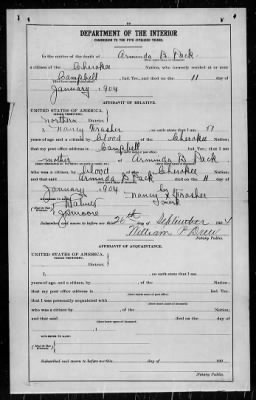 DEPARTMENT OF THE INTERIOR
COMMISSION TO THE FIVE CIVILIZED TRIBES
In the matter of the death of Arminda B. Pack
a citizen of the Cherokee Nation, who formerly resided at or near
Campbell, Ind. Ter., and died on the 11 day of
January 1904
AFFIDAVIT OF RELATIVE.
UNITED STATES OF AMERICA,
INDIAN TERRITORY,
Northern District.
I, Nancy Frasher, on oath state that I am 51
years of age and a citizen by blood of the Cherokee Nation;
that my post office address is Campbell, Ind. Ter.;
that I am mother of Arminda B. Pack
who was a citizen, by blood, of the Cherokee Nation;
and that said Arminda B. Pack died on the 11 day of
January, 1904
Nancy X Frasher
mark
J. B. Moore
Subscribed and sworn to before me this 26th day of September, 1904
William P.
Notary Public.
AFFIDAVIT OF ACQUAINTANCE.
UNITED STATES OF AMERICA,
INDIAN TERRITORY,
District.
I, on oath state that I am
years of age, and a citizen by of the Nation;
that my post office address is Ind. Ter.;
that I was personally acquainted with
who was a citizen, by of the Nation;
and that said died on the day of
Subscribed and sworn to before me this day of 190
Notary Public.